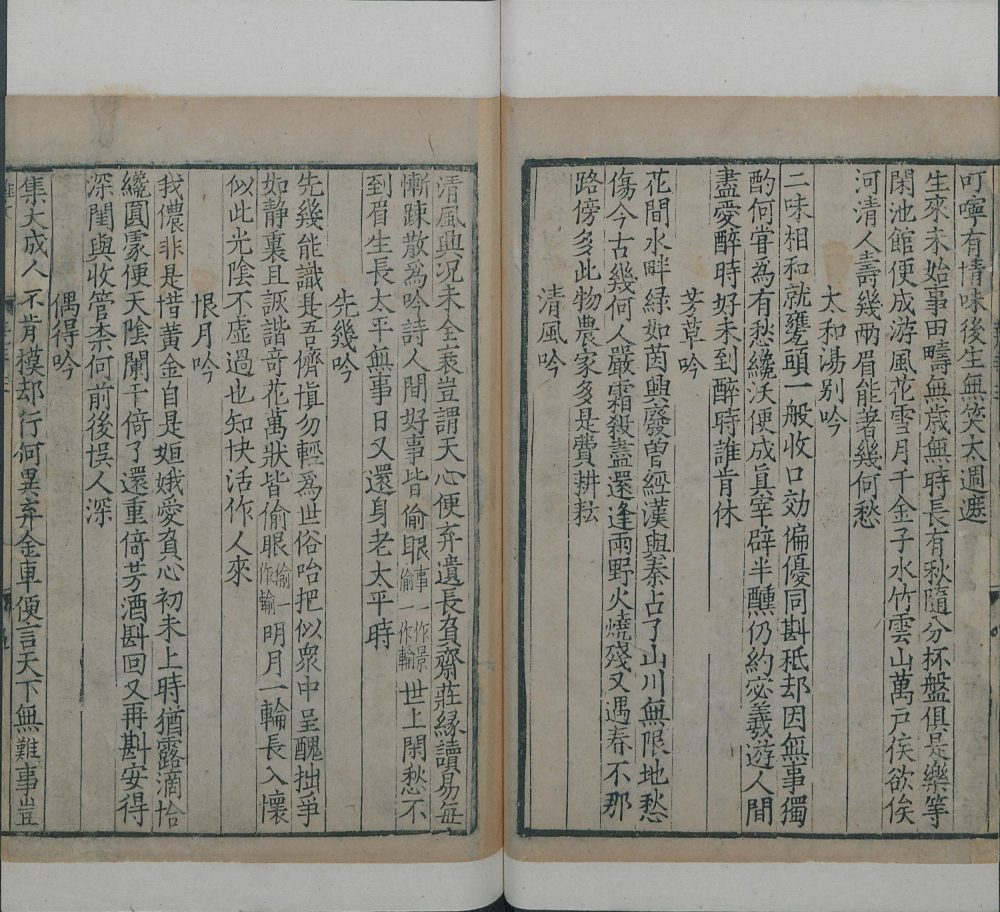 叮嚀有情味後生無笑太週遮
生來未始事田疇無歲無時長有秋隨分杯盤俱是樂等
閑池館便成游風花雪月千金子水竹雲山萬戶侯欲俟
河清人壽幾兩眉能著幾何愁
太和湯別吟
二味相和就甕頭一般收口効偏優同斟秪却因無事獨
酌何甞為有愁纔沃便成真宰辟半醺仍約宓羲遊人間
盡愛醉時好未到醉時誰肯休
芳草吟
花間水畔綠如茵興廢曾經漢與秦占了山川無限地愁
傷今古幾何人嚴霜殺盡還逢雨野火燒殘又遇春不那
路傍多此物農家多是費耕耘
清風吟
清風興况未全衰豈謂天心便弃遺長負齋莊緣讀易每
慚踈散為吟詩人間好事皆偷眼事一作景偷一作輸世上閑愁不
到眉生長太平無事日又還身老太平時
先幾吟
先幾能識是吾儕慎勿輕為世俗咍把似衆中呈醜拙爭
如靜裏且詼諧奇花萬狀皆偷眼偷一作輸明月一輪長入懷
似此光陰不虛過也知快活作人來
恨月吟
我儂非是惜黃金自是姮娥愛負心初未上時猶露滴恰
纔圓處便天陰闌干倚了還重倚芳酒斟回又再斟安得
深閨與收管柰何前後悮人深
偶得吟
集大成人不肯模却行何異弃金車便言天下無難事豈